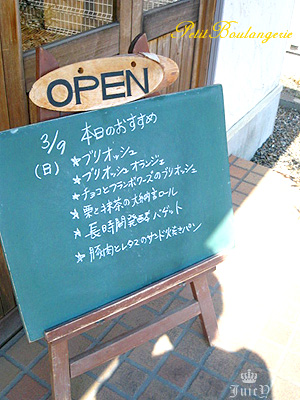 Petit Boulangerie
OPEN
3/9 本日のおすすめ
(日) ★ブリオッシュ
★ブリオッシュ オランジェ
★チョコとフランボワーズのブリオッシュ
★栗と抹茶の大納言ロール
★長時間発酵バゲット
★豚肉とレタスのサンド焼きパン
JUICY